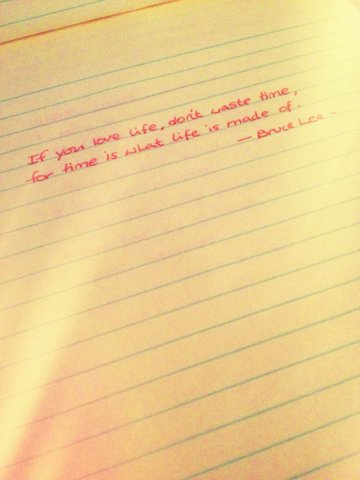 If you love life, don't waste time,
for time is what life is made of.
— Bruce Lee –